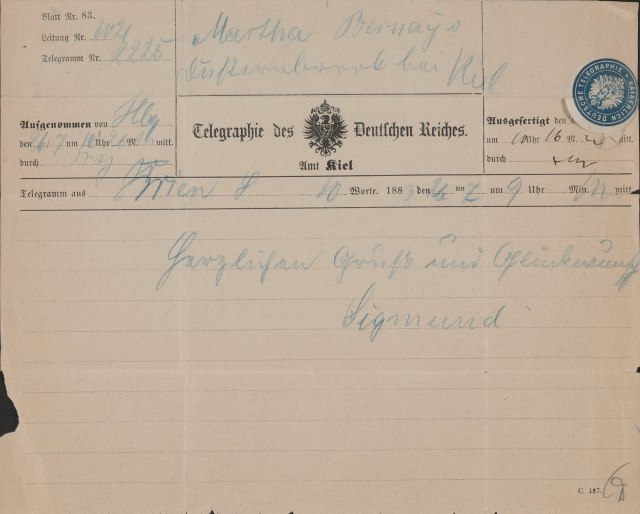 Blatt Nr. 83.
Leitung Nr. 
Telegramm Nr. 2225
Martha Bernays
Düsternbrook bei Kiel
KAISERLICH DEUTSCHE TELEGRAPHIE
Aufgenommen von Hbg
den 26/7 um 10 Uhr M. mitt.
durch
Telegraphie des Deutschen Reiches.
Amt Kiel
Ausgefertigt den
um 10 Uhr 16 M. mitt.
durch
Telegramm aus Wien 10 Worte. 1883 den 26 ten 7 um 9 Uhr Min. mitt
Herzlichen Gruß und Glückwunsch
Sigmund
C. 187.